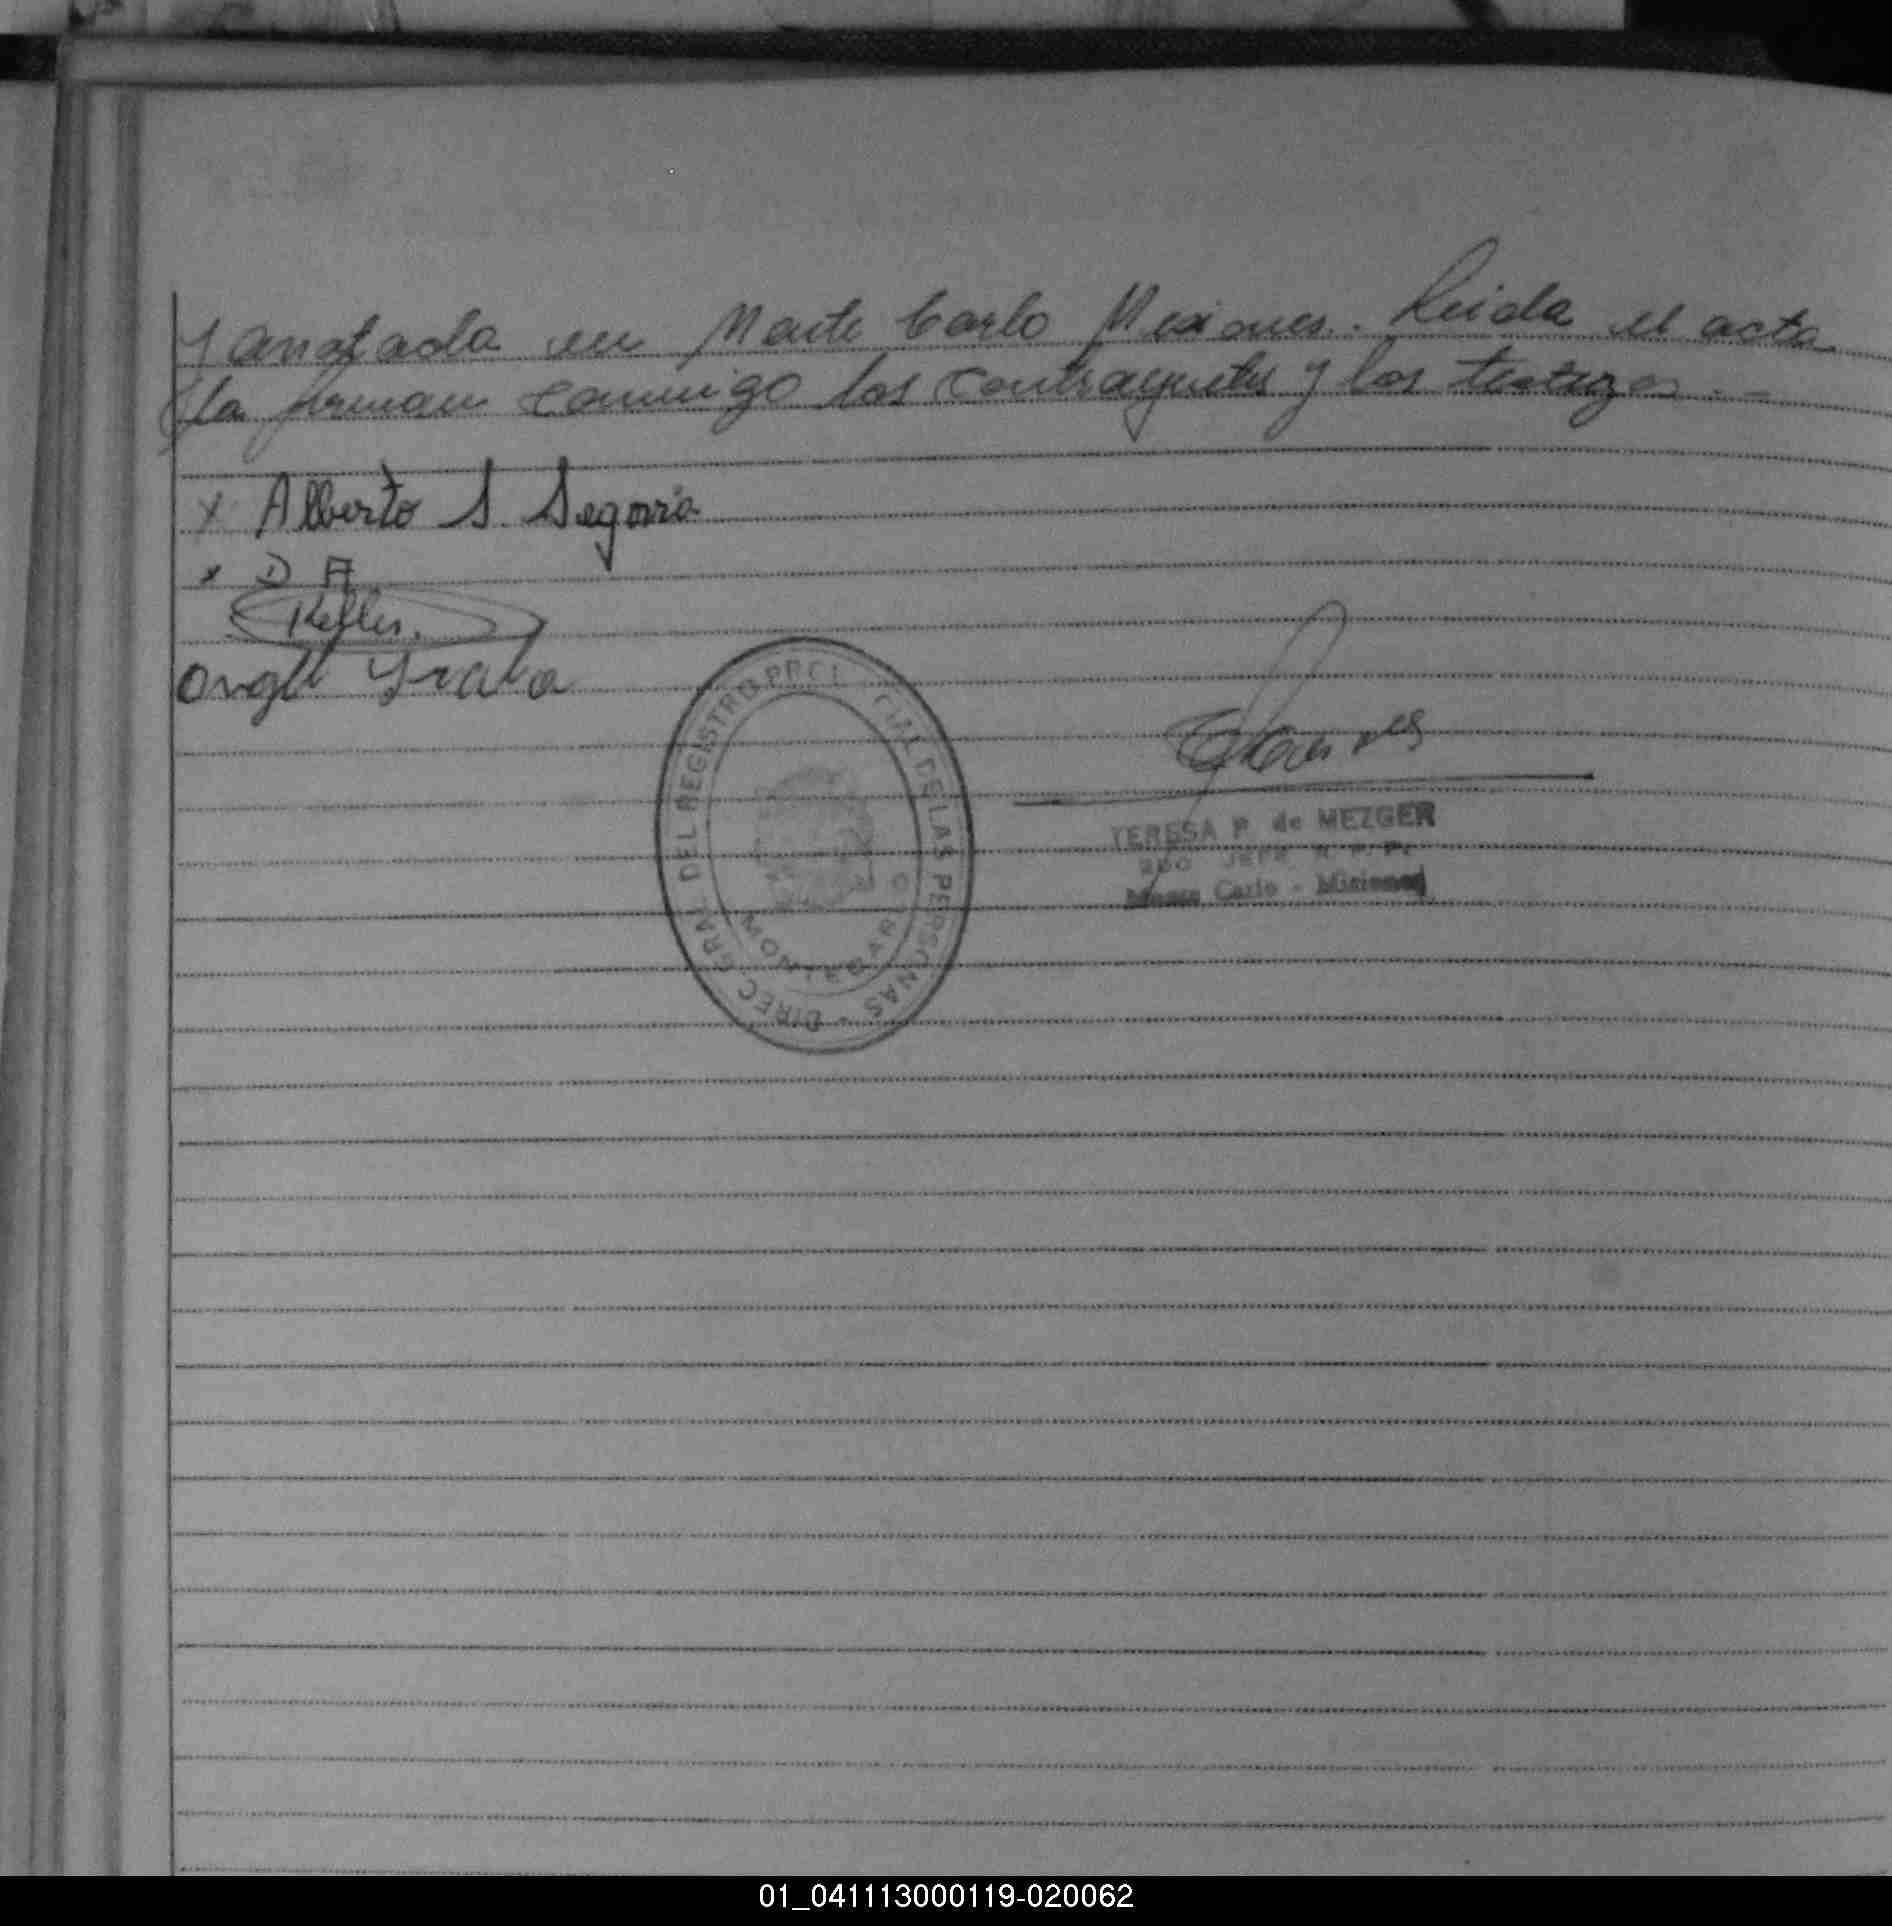 y anotada en Monte Carlo Misiones. Leida el acta
la firman conmigo los contrayentes y los testigos. -
x Alberto S. Segovia
x D A
Keller.
DIREC. GRAL. DEL REGISTRO PRCL. DE LAS PERSONAS -
MONTECARLO
TERESA P. de MEZGER
2DO JEFE R. P. P.
Monte Carlo - Misiones
01_041113000119-020062